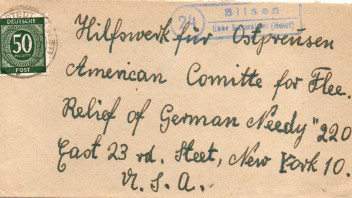 DEUTSCHE
50
PFENNIG
POST
24
Bilsen
(Holst)
Hilfswerk für Ostpreusen
American Comitte for Flee.
Relief of German Needy" 220
East 23 rd. Steet, New York 10.
U. S. A.